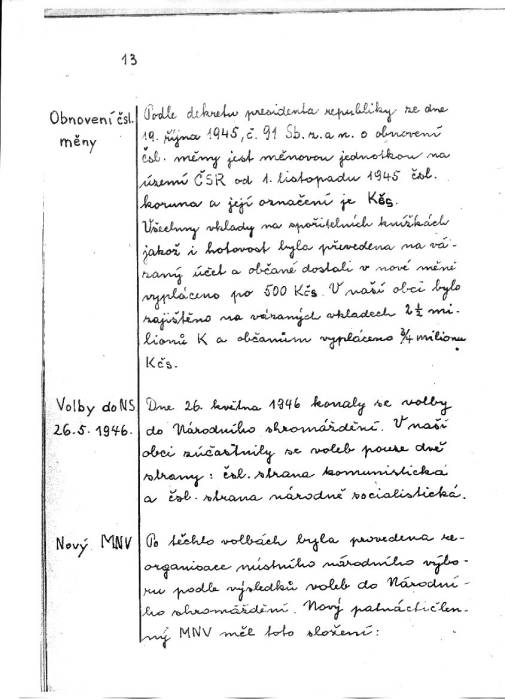 13
Obnovení čsl. měny
Podle dekretu presidenta republiky ze dne
19. října 1945, č. 91 Sb. z. a n. o obnovení
čsl. měny jest měnovou jednotkou na
území ČSR od 1. listopadu 1945 čsl.
koruna a její označení je Kčs.
Všechny vklady na spořitelních knížkách
jakož i hotovost byla převedena na vá-
zaný účet a občané dostali v nové měně
vypláceno po 500 Kčs. V naší obci bylo
zajištěno na vázaných vkladech 2 1/2 mi-
lionů K a občanům vypláceno 3/4 milionu
Kčs.
Volby do NS
26.5.1946.
Dne 26. května 1946 konaly se volby
do Národního shromáždění. V naší
obci zúčastnily se voleb pouze dvě
strany: čsl. strana komunistická
a čsl. strana národně socialistická.
Nový MNV
Po těchto volbách byla provedena re-
organisace místního národního výbo-
ru podle výsledků voleb do Národní-
ho shromáždění. Nový patnáctičlen-
ný MNV měl toto složení: